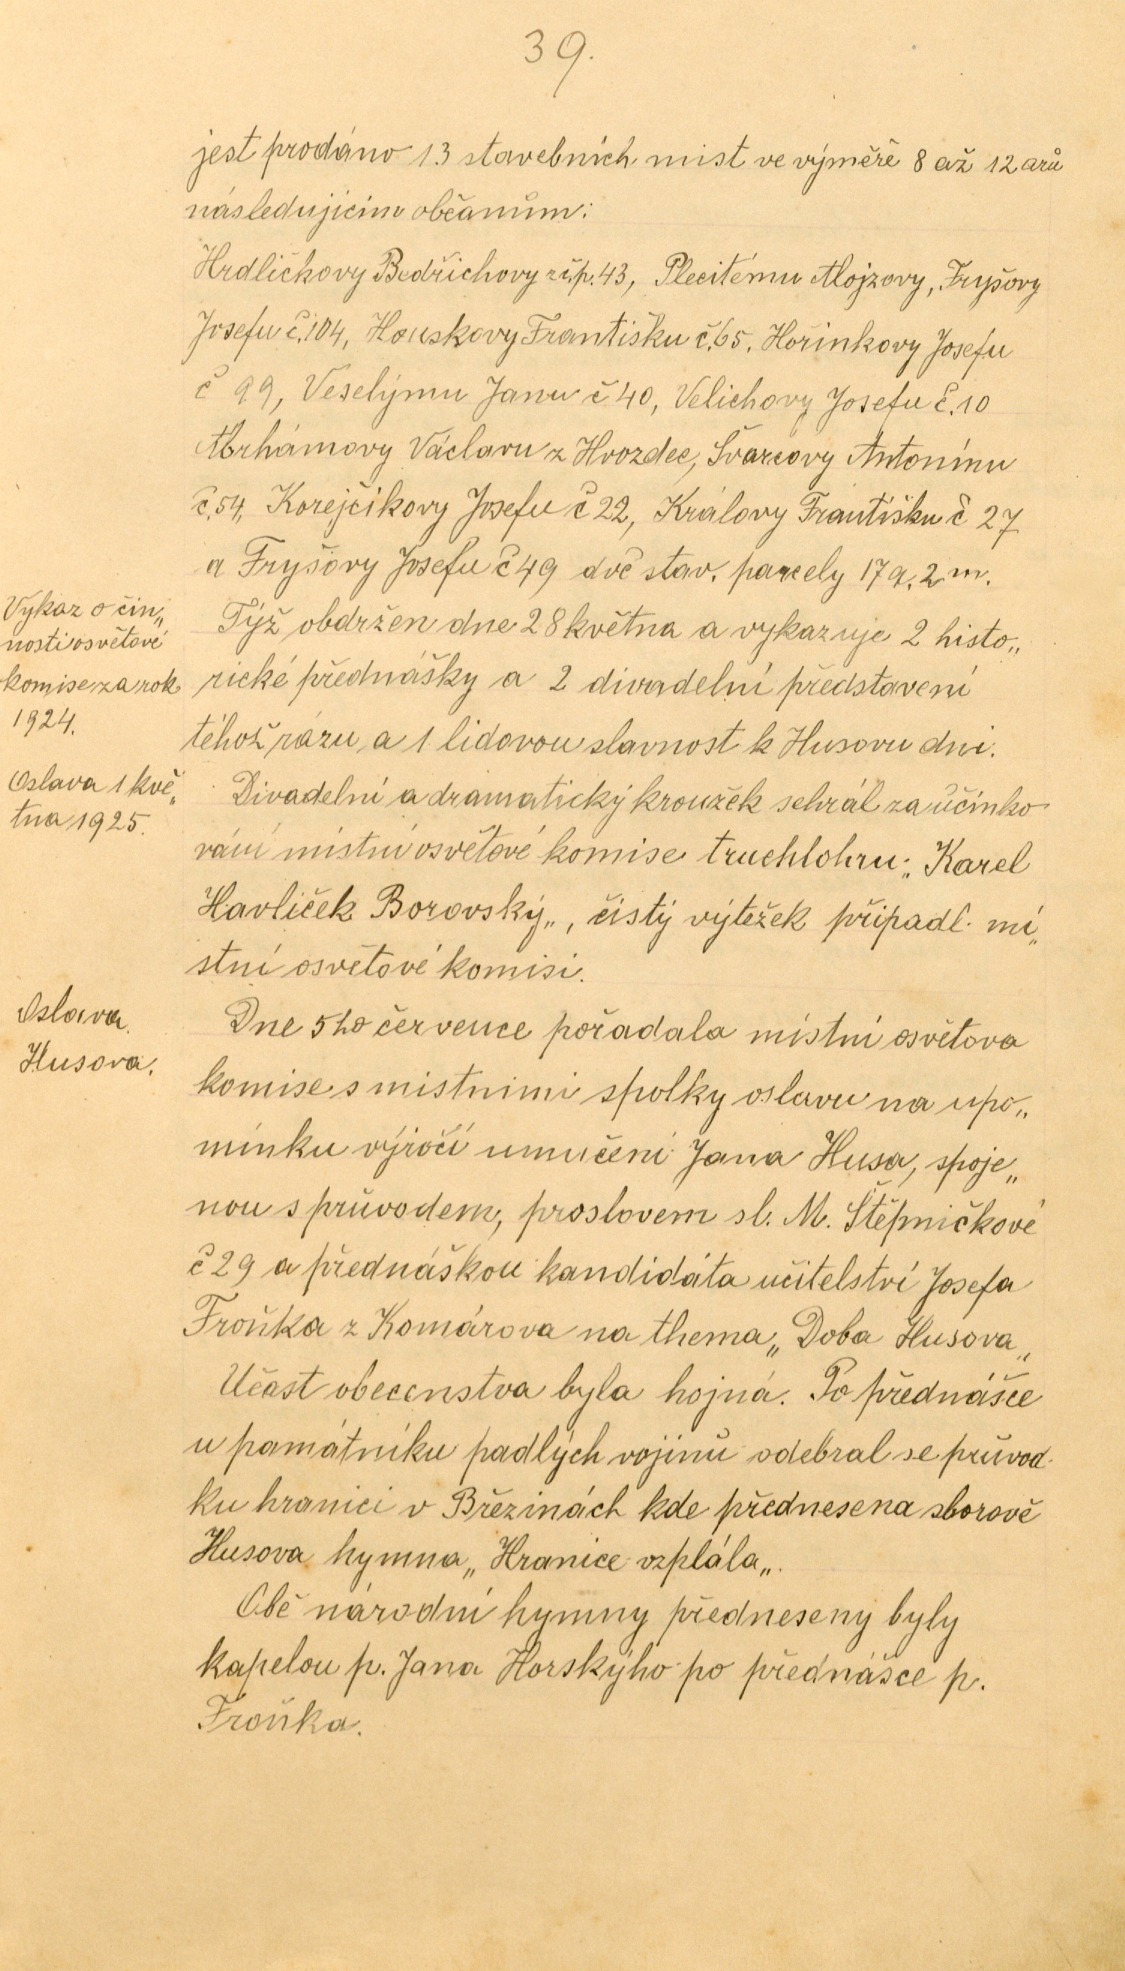 39.
jest prodáno 13 stavebních mist ve výměře 8 až 12 arů
následujícim občanům:
Hrdličkovy Bedřichovy z č.p. 43, Plecitému Alojzovy, Fryšovy
Josefu č. 104, Houskovy Františku č. 65, Hořinkovy Josefu
č 99, Veselýmu Janu č 40, Velichovy Josefu č. 10
Abrhámovy Václavu z Hvozdec, Švarcovy Antonínu
č. 54, Korejčíkovy Josefu č 22, Královy Františku č 27
a Fryšovy Josefu č 49 dvě stav. parcely 17 a. 2 m.
Výkaz o čin„
nosti osvětové
komise za rok
1924.
Týž obdržen dne 28 května a vykazuje 2 histo„
rické přednášky a 2 divadelní představení
téhož rázu a 1 lidovou slavnost k Husovu dni.
Oslava 1 kvě„
tna 1925.
Divadelní a dramatický kroužek sehrál za účinko
vání místní osvětové komise truchlohru: „Karel
Havlíček Borovský„, čistý výtežek připadl mí„
stní osvětové komisi.
Oslava
Husova.
Dne 5ho července pořadala místní osvětova
komise s mistnimi spolky oslavu na upo„
mínku výročí umučení Jana Husa, spoje„
nou s průvodem, proslovem sl. M. Štěpničkové
č 29 a přednáškou kandidáta učitelství Josefa
Froňka z Komárova na thema „Doba Husova„
Učast obecenstva byla hojná. Po přednášce
u památníku padlých vojínů odebral se průvod
ku hranici v Březinách kde přednesena sborově
Husova hymna „Hranice vzplála„.
Obě národní hymny předneseny byly
kapelou p. Jana Horskýho po přednášce p.
Froňka.